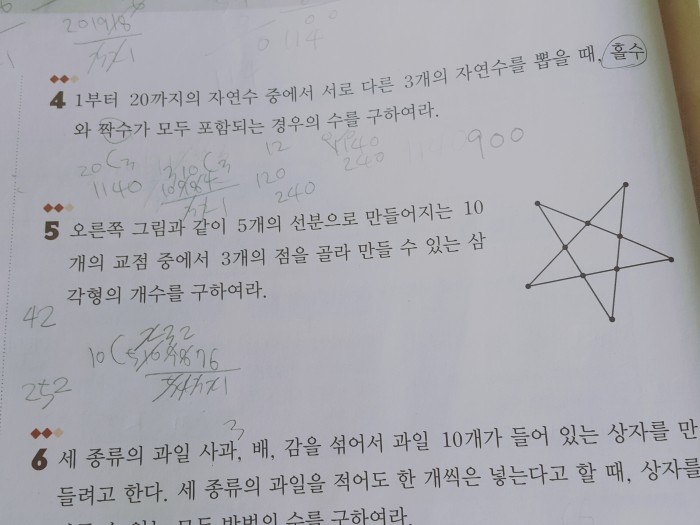 201918
1140
4 1부터 20까지의 자연수 중에서 서로 다른 3개의 자연수를 뽑을 때, 홀수
와 짝수가 모두 포함되는 경우의 수를 구하여라.
20C3
1140
12
120
240
240
900
5 오른쪽 그림과 같이 5개의 선분으로 만들어지는 10
개의 교점 중에서 3개의 점을 골라 만들 수 있는 삼
각형의 개수를 구하여라.
42
10C5
252
3
6 세 종류의 과일 사과, 배, 감을 섞어서 과일 10개가 들어 있는 상자를 만
들려고 한다. 세 종류의 과일을 적어도 한 개씩은 넣는다고 할 때, 상자를
모든 방법의 수를 구하여라.